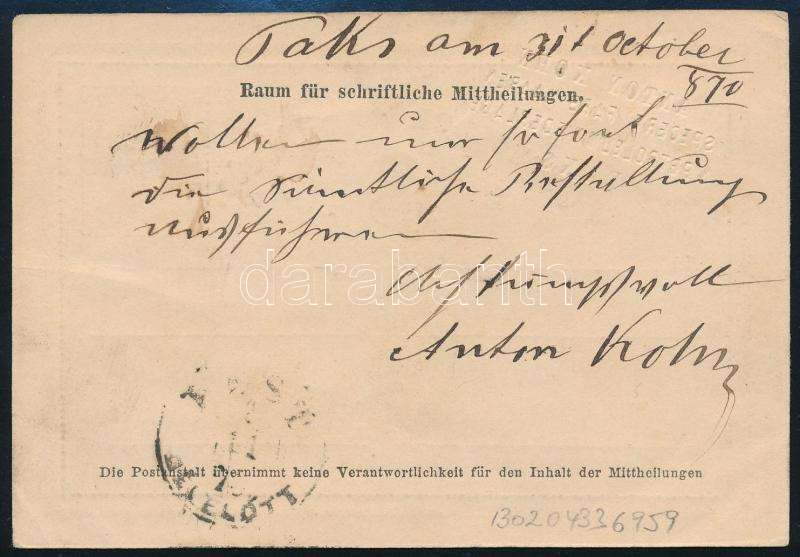 Paks am 31t October
870
Raum für schriftliche Mittheilungen.
Wollen nur sofort
die sämtliche Bestellung
ausführen
Achtungsvoll
Anton Kohn
darabanth
PEST
DÉLELŐTT
Die Postanstalt übernimmt keine Verantwortlichkeit für den Inhalt der Mittheilungen
130204336959